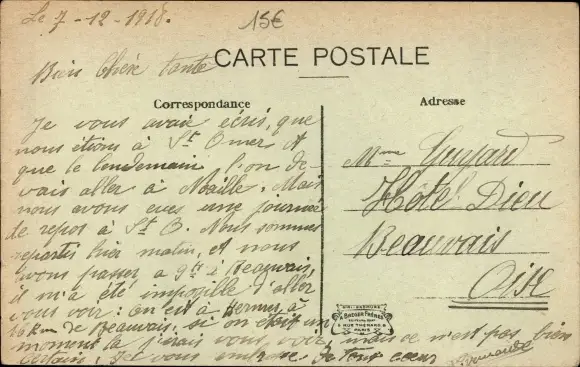 Le 7-12-1918.
15€
CARTE POSTALE
Bien Chère Tante
Correspondance
Je vous avais écris, que
nous étions à St Omer et
que le lendemain l'on de-
vais aller à Noaille. Mais
nous avons eues une journée
de repos à St O. Nous sommes
repartis hier matin, et nous
avons passer a Beauvais,
il m'a été impossible d'aller
vous voir: on est à Hermes, à
de Beauvais, si on était un
moment là j'irais vous voir, mais ce n'est pas bien
certain, Je vous embrasse de tout cœur
Adresse
Mme Guyard
Hôtel Dieu
Beauvais
Oise
BODIER FRÈRES
6 RUE THÉNARD 6
PARIS